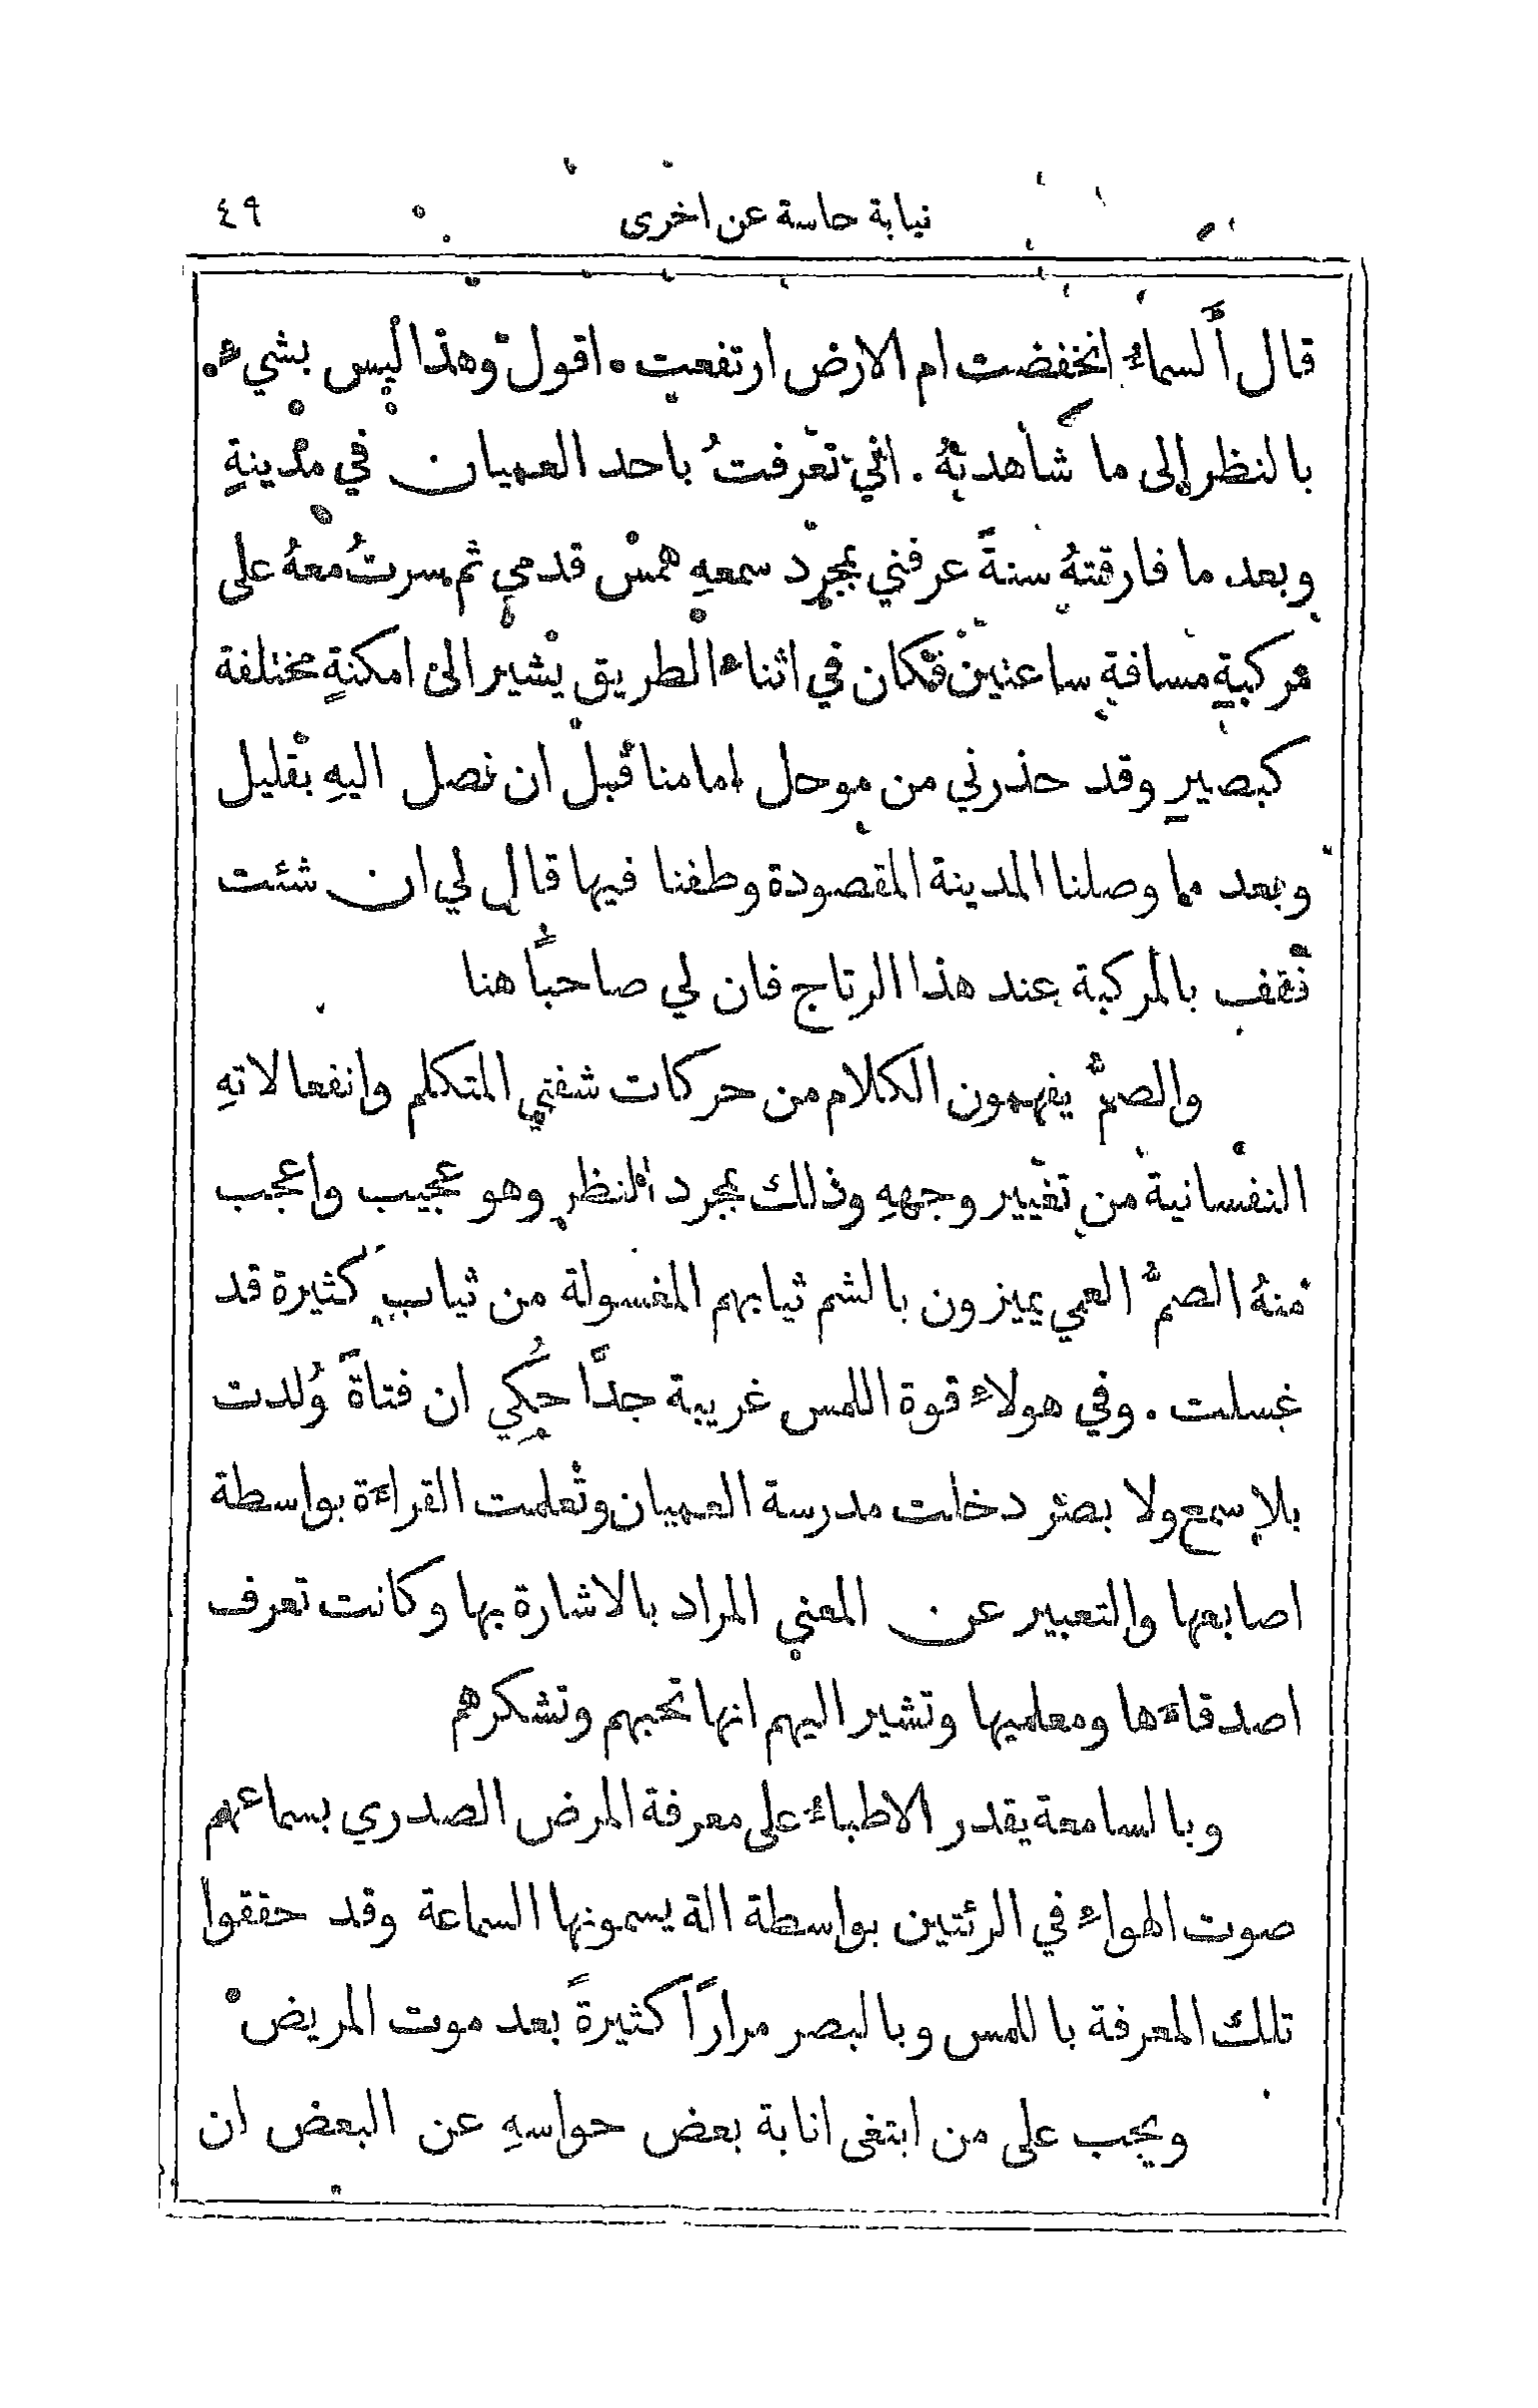 نيابة حاسة عن اخرى ٤٩
قال أَلسماءُ انخفضت ام الارض ارتفعت . اقول وهذا ليس بشيء .
بالنظر إلى ما شاهدتهُ . انني تعرفتُ باحد العميان في مدينةٍ
وبعد ما فارقتهُ سنةً عرفني بمجرد سمعهِ همس قدمي ثم سرتُ معهُ على
مركبةٍ مسافة ساعتين فكان في اثناء الطريق يشير الى امكنةٍ مختلفة
كبصيرٍ وقد حذرني من موحل امامنا قبل ان نصل اليهِ بقليل
وبعد ما وصلنا المدينة المقصودة وطفنا فيها قال لي ان شئت
نقف بالمركبة عند هذا الرتاج فان لي صاحبًا هنا
والصمُّ يفهمون الكلام من حركات شفتي المتكلم وانفعالاتهِ
النفسانية من تغيير وجههِ وذلك بمجرد النظر وهو عجيب واعجب
منهُ الصمُّ العمي يميزون بالشم ثيابهم المغسولة من ثيابٍ كثيرة قد
غسلت . وفي هولاء قوة اللمس غريبة جدًّا حُكِي ان فتاةً وُلدت
بلا سمع ولا بصر دخلت مدرسة العميان وتعلمت القراءة بواسطة
اصابعها والتعبير عن المعنى المراد بالاشارة بها وكانت تعرف
اصدقاءها ومعلميها وتشير اليهم انها تحبهم وتشكرهم
وبالسامعة يقدر الاطباء على معرفة المرض الصدري بسماعهم
صوت الهواء في الرئتين بواسطة الة يسمونها السماعة وقد حققوا
تلك المعرفة باللمس وبالبصر مرارًا كثيرةً بعد موت المريض
ويجب على من ابتغى انابة بعض حواسهِ عن البعض ان